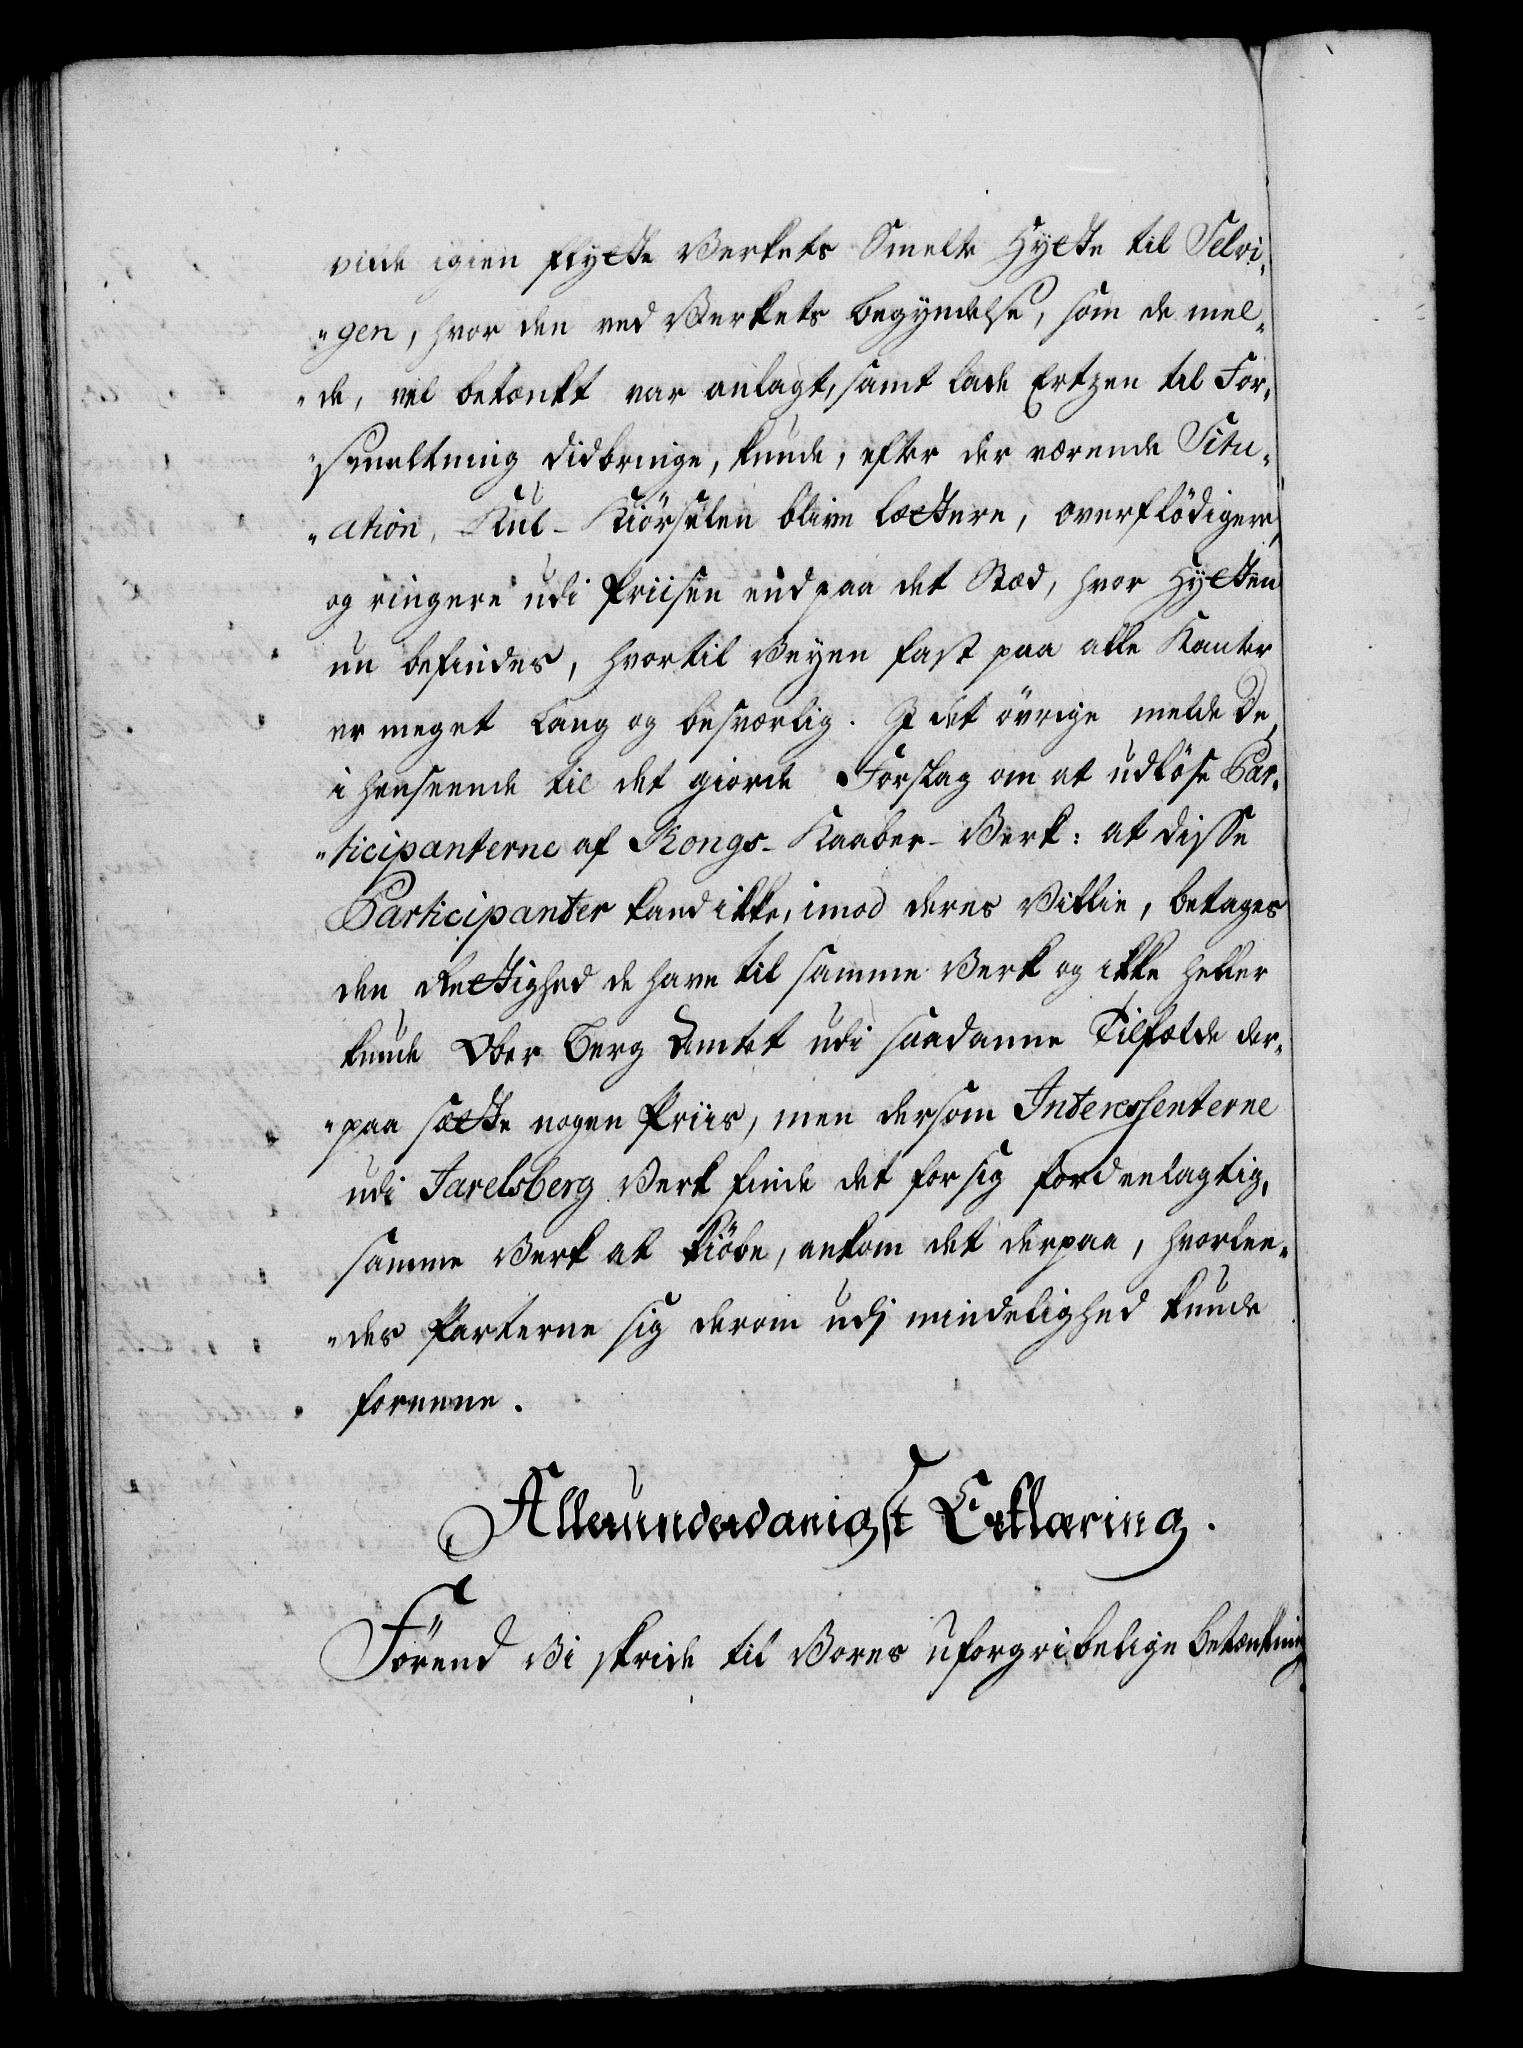 vilde igien flytte Verkets Smelte Hytte til Selvi-
"gen, hvor den ved Verkets begyndelse, som de mel-
"de, vel betænkt var anlagt, samt lade Ertzen til For-
"smeltning didbringe, kunde, efter der værende Situ-
"ation, Kul-Kiörselen blive lættere, overflödigere,
og ringere udi Priisen end paa det Stæd, hvor Hytten
nu befindes, hvortil Veyen fast paa alle Kanter
er meget lang og besværlig. I det övrige melde De,
i henseende til det giorde Forslag om at udlöse Par-
"ticipanterne af Kongs-Kaaber-Verk: at disse
Participanter kand ikke, imod deres Villie, betages
den Rettighed de have til samme Verk og ikke heller
kunde Ober Berg Amtet udi saadanne Tilfælde der-
"paa sætte nogen Priis, men dersom Interessenterne
udi Jarelsberg Verk finde det for sig fordeelagtig,
samme Verk at kiöbe, ankom det derpaa, hvorlee-
"des Parterne sig derom udj mindelighed kunde
foreene.
Allerunderdanigst Erklæring.
Förend Vi skride til Vores uforgribelige Betænkning